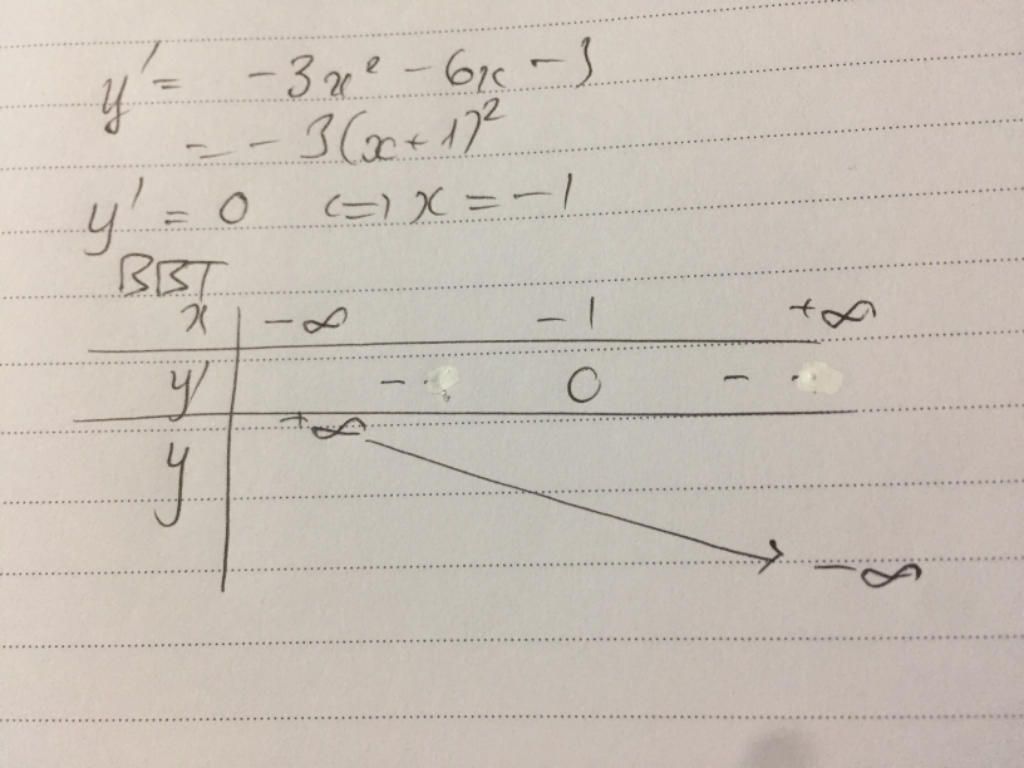 y' = -3x² - 6x - 3
= -3(x+1)²
y' = 0 <=> x = -1
BBT
x -∞ -1 +∞
y' - 0 -
y +∞ -∞